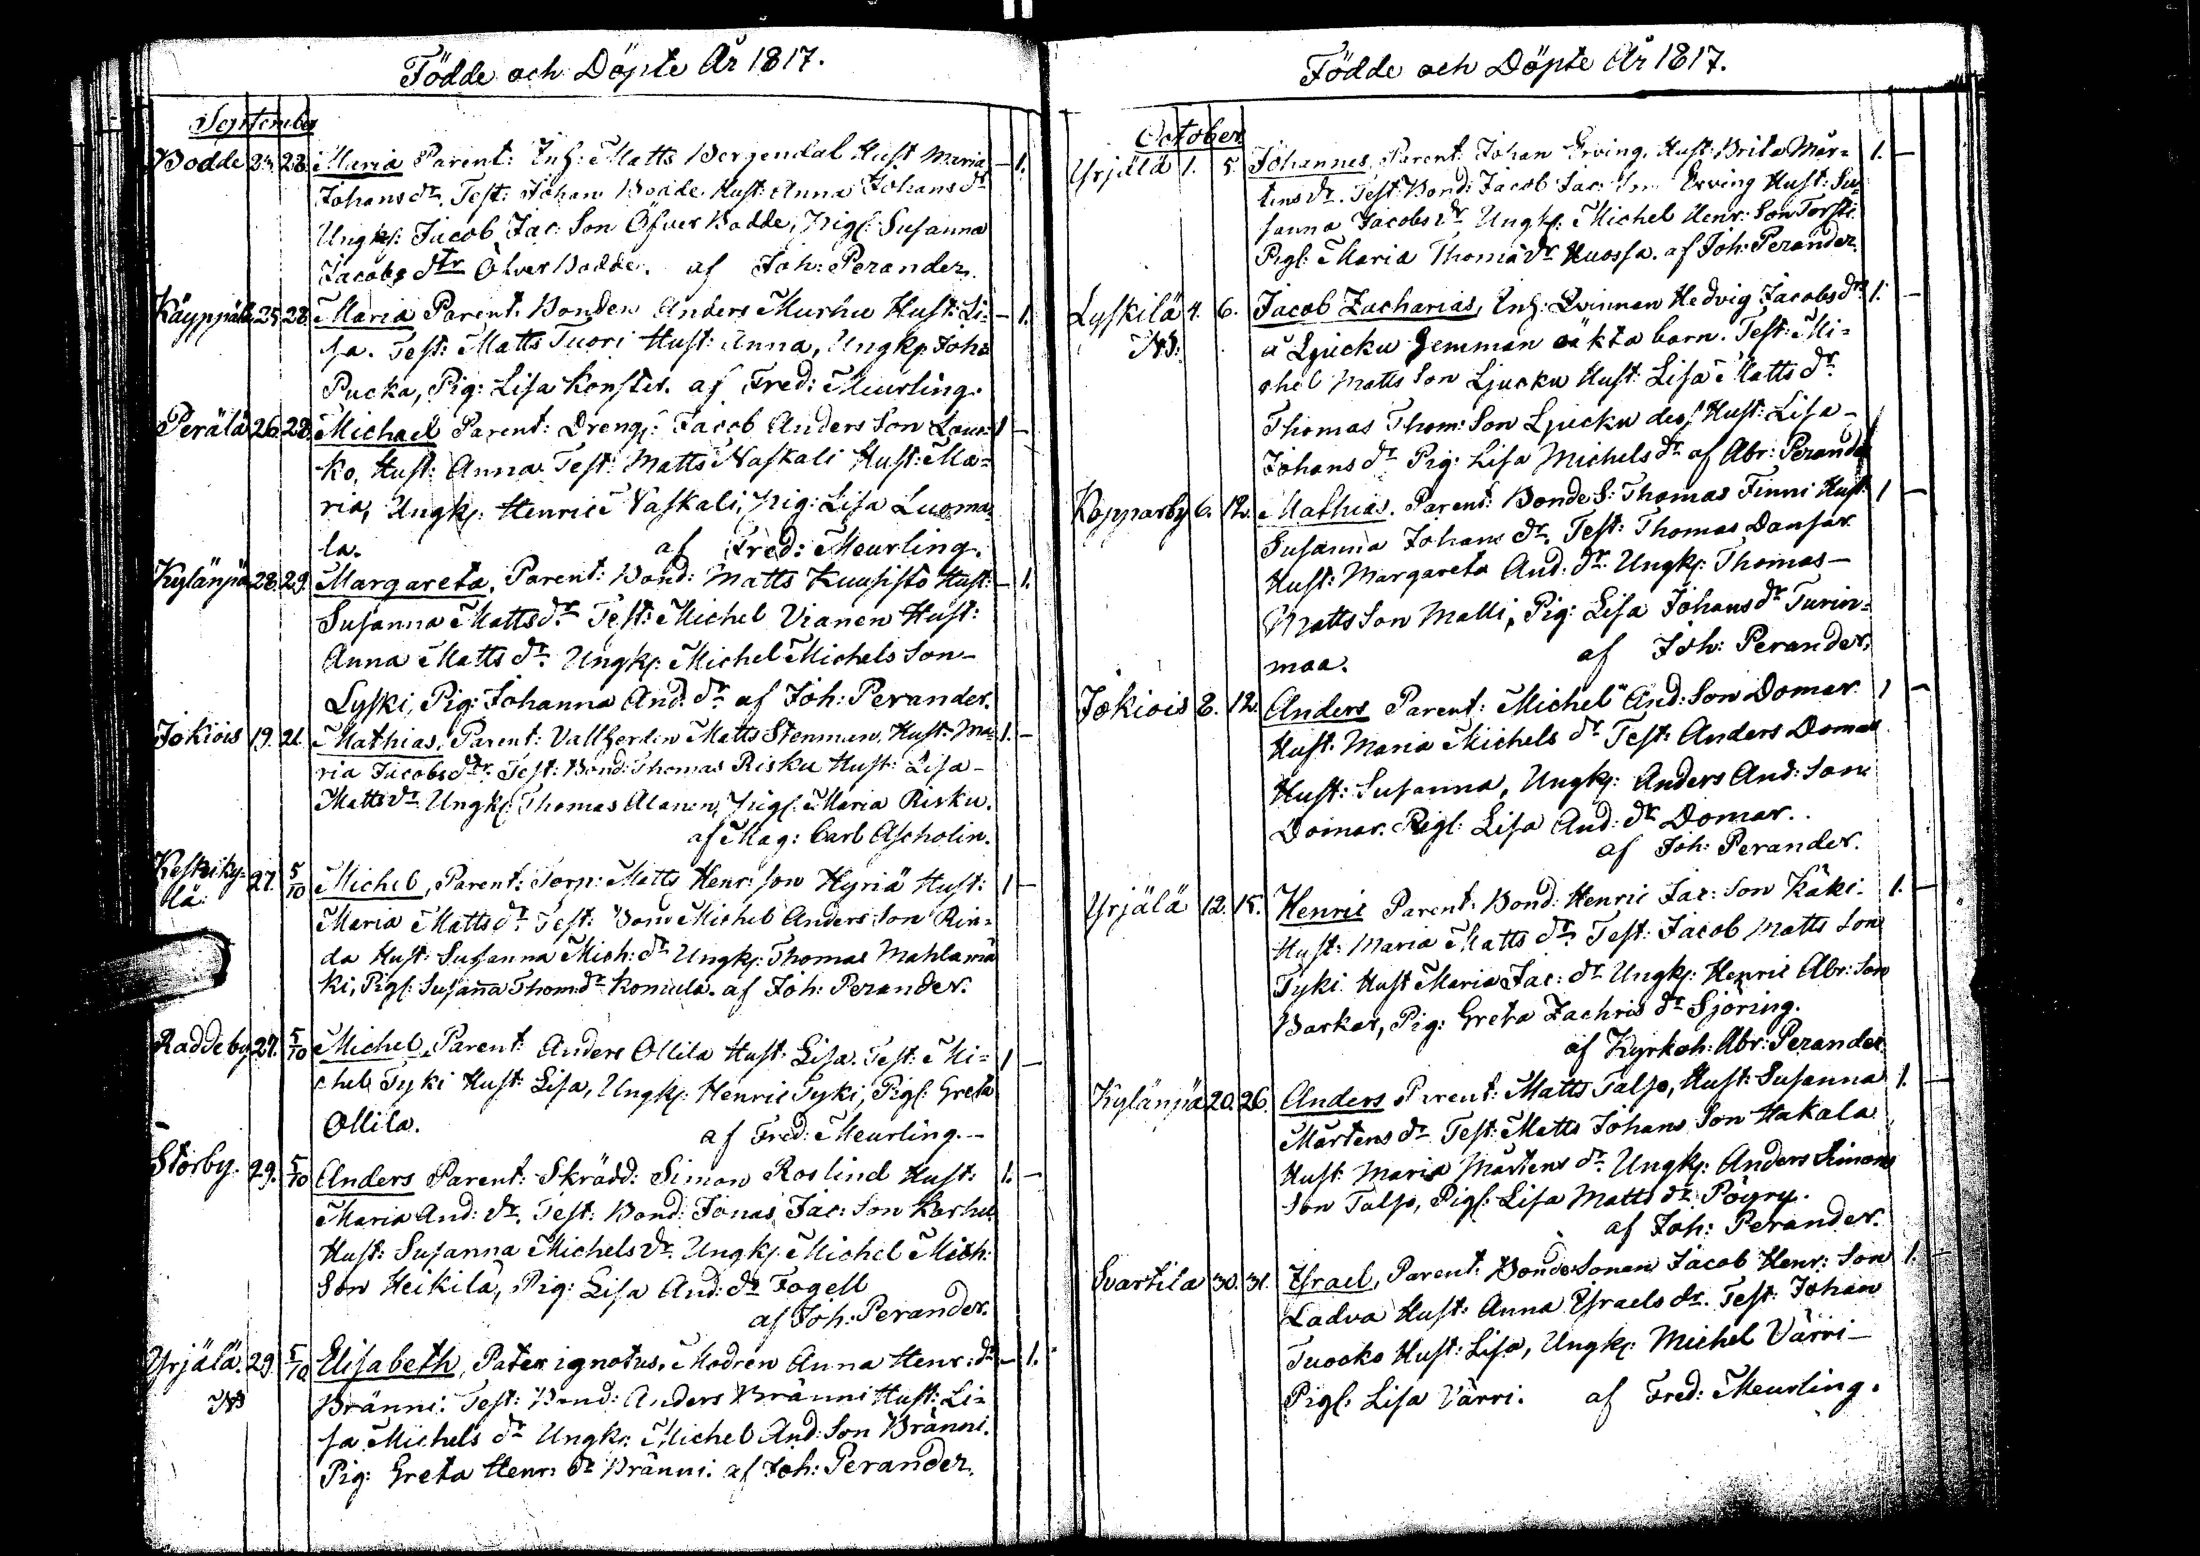 Födde och Döpte År 1817.
September
Bodde 23. 28. Maria Parent: Inh: Matts Bergendal Hust Maria — 1.
Johans dr. Test: Johan Bodde Hust: Anna Johans dr
Ungk: Jacob Jac: Son Öfver Bodde, Pig: Susanna
Jacobs dtr Öfver Bodde. af Joh: Perander.
Käyppälä 25 28. Maria Parent. Bonden Anders Murhu Hust: Li= — 1.
sa. Test: Matts Tuori Hust: Anna, Ungk: Joha
Pucka, Pig: Lisa Konster. af Fred: Meurling.
Perälä 26. 28. Michael Parent: Dreng: Jacob Anders Son Lau= 1 —
ko, Hust: Anna. Test: Matts Naskali Hust: Ma=
ria, Ungk: Henric Naskali, Pig: Lisa Luoma=
la. af Fred: Meurling.
Kylänpä 28. 29. Margareta. Parent: Bond: Matts Kuusisto Hust: — 1.
Susanna Matts dr. Test: Michel Vianen Hust:
Anna Matts dr. Ungk: Michel Michels Son —
Lyski, Pig: Johanna And. dr. af Joh: Perander.
Jokiois 19. 21. Mathias, Parent: Vallherden Matts Stenman, Hust: Ma= 1. —
ria Jacobs dtr. Test: Bond: Thomas Risku Hust: Lisa —
Matts dr. Ungk: Thomas Alanen, Pig: Maria Risku.
af Mag: Carl Ascholin.
Keskiky= 27. 5/10 Michel, Parent: Torp: Matts Henr: son Hyriä Hust: 1 —
lä:
Maria Matts dr. Test: Bond Michel Anders Son Rin=
da Hust: Susanna Mich: dr Ungk: Thomas Mahlamä
ki, Pig: Susanna Thom: dr Komula. af Joh: Perander.
Raddeby 27. 5/10 Michel. Parent: Anders Ollila Hust: Lisa. Test: Mi= 1 —
chel Tyki Hust: Lisa, Ungk: Henric Tyki, Pig: Greta
Ollila. af Fred: Meurling. —
Storby. 29. 5/10 Anders Parent: Skrädd: Simon Roslind Hust: 1. —
Maria And: dr. Test: Bond: Jonas Jac: Son Karhu
Hust: Susanna Michels dr. Ungk: Michel Mich:
Son Heikilä, Pig: Lisa And: dr Fogell
af Joh: Perander.
Yrjälä. 29. 5/10 Elisabeth, Pater ignotus, Modren Anna Henr: dr — 1.
NB
Bränni. Test: Bond: Anders Bränni Hust: Li=
sa Michels dr Ungk: Michel And: Son Bränni.
Pig: Greta Henr: dr Bränni. af Joh: Perander.
Födde och Döpte År 1817.
October
Yrjälä 1. 5. Johannes, Parent: Johan Erving, Hust: Brita Mår= 1. —
tens dr. Test: Bond: Jacob Jac: Son Erving Hust: Su=
sanna Jacobs dr, Ungk: Michel Henr: Son Torsti
Pig: Maria Thomä dr Huossa. af Joh: Perander.
Lyskilä 4. 6. Jacob Zacharias, Inh: Qvinnan Hedvig Jacobs dr 1. —
NB:
u Ljucku Hemman oäkta barn. Test: Mi=
chel Matts Son Ljucku Hust: Lisa Matts dr
Thomas Thom: Son Ljucku dess Hust: Lisa —
Johans dr Pig: Lisa Michels dr af Abr: Perander
Kopparby 6. 12. Mathias. Parent: Bonde S: Thomas Finni Hust: 1 —
Susanna Johans dr, Test: Thomas Dansar
Hust: Margareta And: dr. Ungk: Thomas —
Matts Son Malli, Pig: Lisa Johans dr Turin=
maa. af Joh: Perander.
Jokiois 8. 12. Anders Parent: Michel And: Son Domar 1 —
Hust: Maria Michels dr Test: Anders Domar
Hust: Susanna, Ungk: Anders And: Son
Domar. Pig: Lisa And: dr Domar.
af Joh: Perander.
Yrjälä 12. 15. Henric Parent: Bond: Henric Jac: Son Käki. 1. —
Hust: Maria Matts dr. Test: Jacob Matts Son
Tyki Hust Maria Jac: dr Ungk: Henric Abr: Son
Barkar, Pig: Greta Zachris dr Sjöring.
af Kyrkoh: Abr: Perander.
Kylänpä 20. 26. Anders Parent: Matts Talso, Hust: Susanna 1. —
Mårtens dr Test: Matts Johans Son Hakala
Hust: Maria Mårtens dr. Ungk: Anders Simons
Son Talso, Pig: Lisa Matts dr Pögry.
af Joh: Perander.
Svartila 30. 31. Israel, Parent: Bonde Sonen Jacob Henr: Son 1. —
Ladva Hust: Anna Israels dr. Test: Johan
Tuocko Hust: Lisa, Ungk: Michel Värri —
Pig: Lisa Värri. af Fred: Meurling.